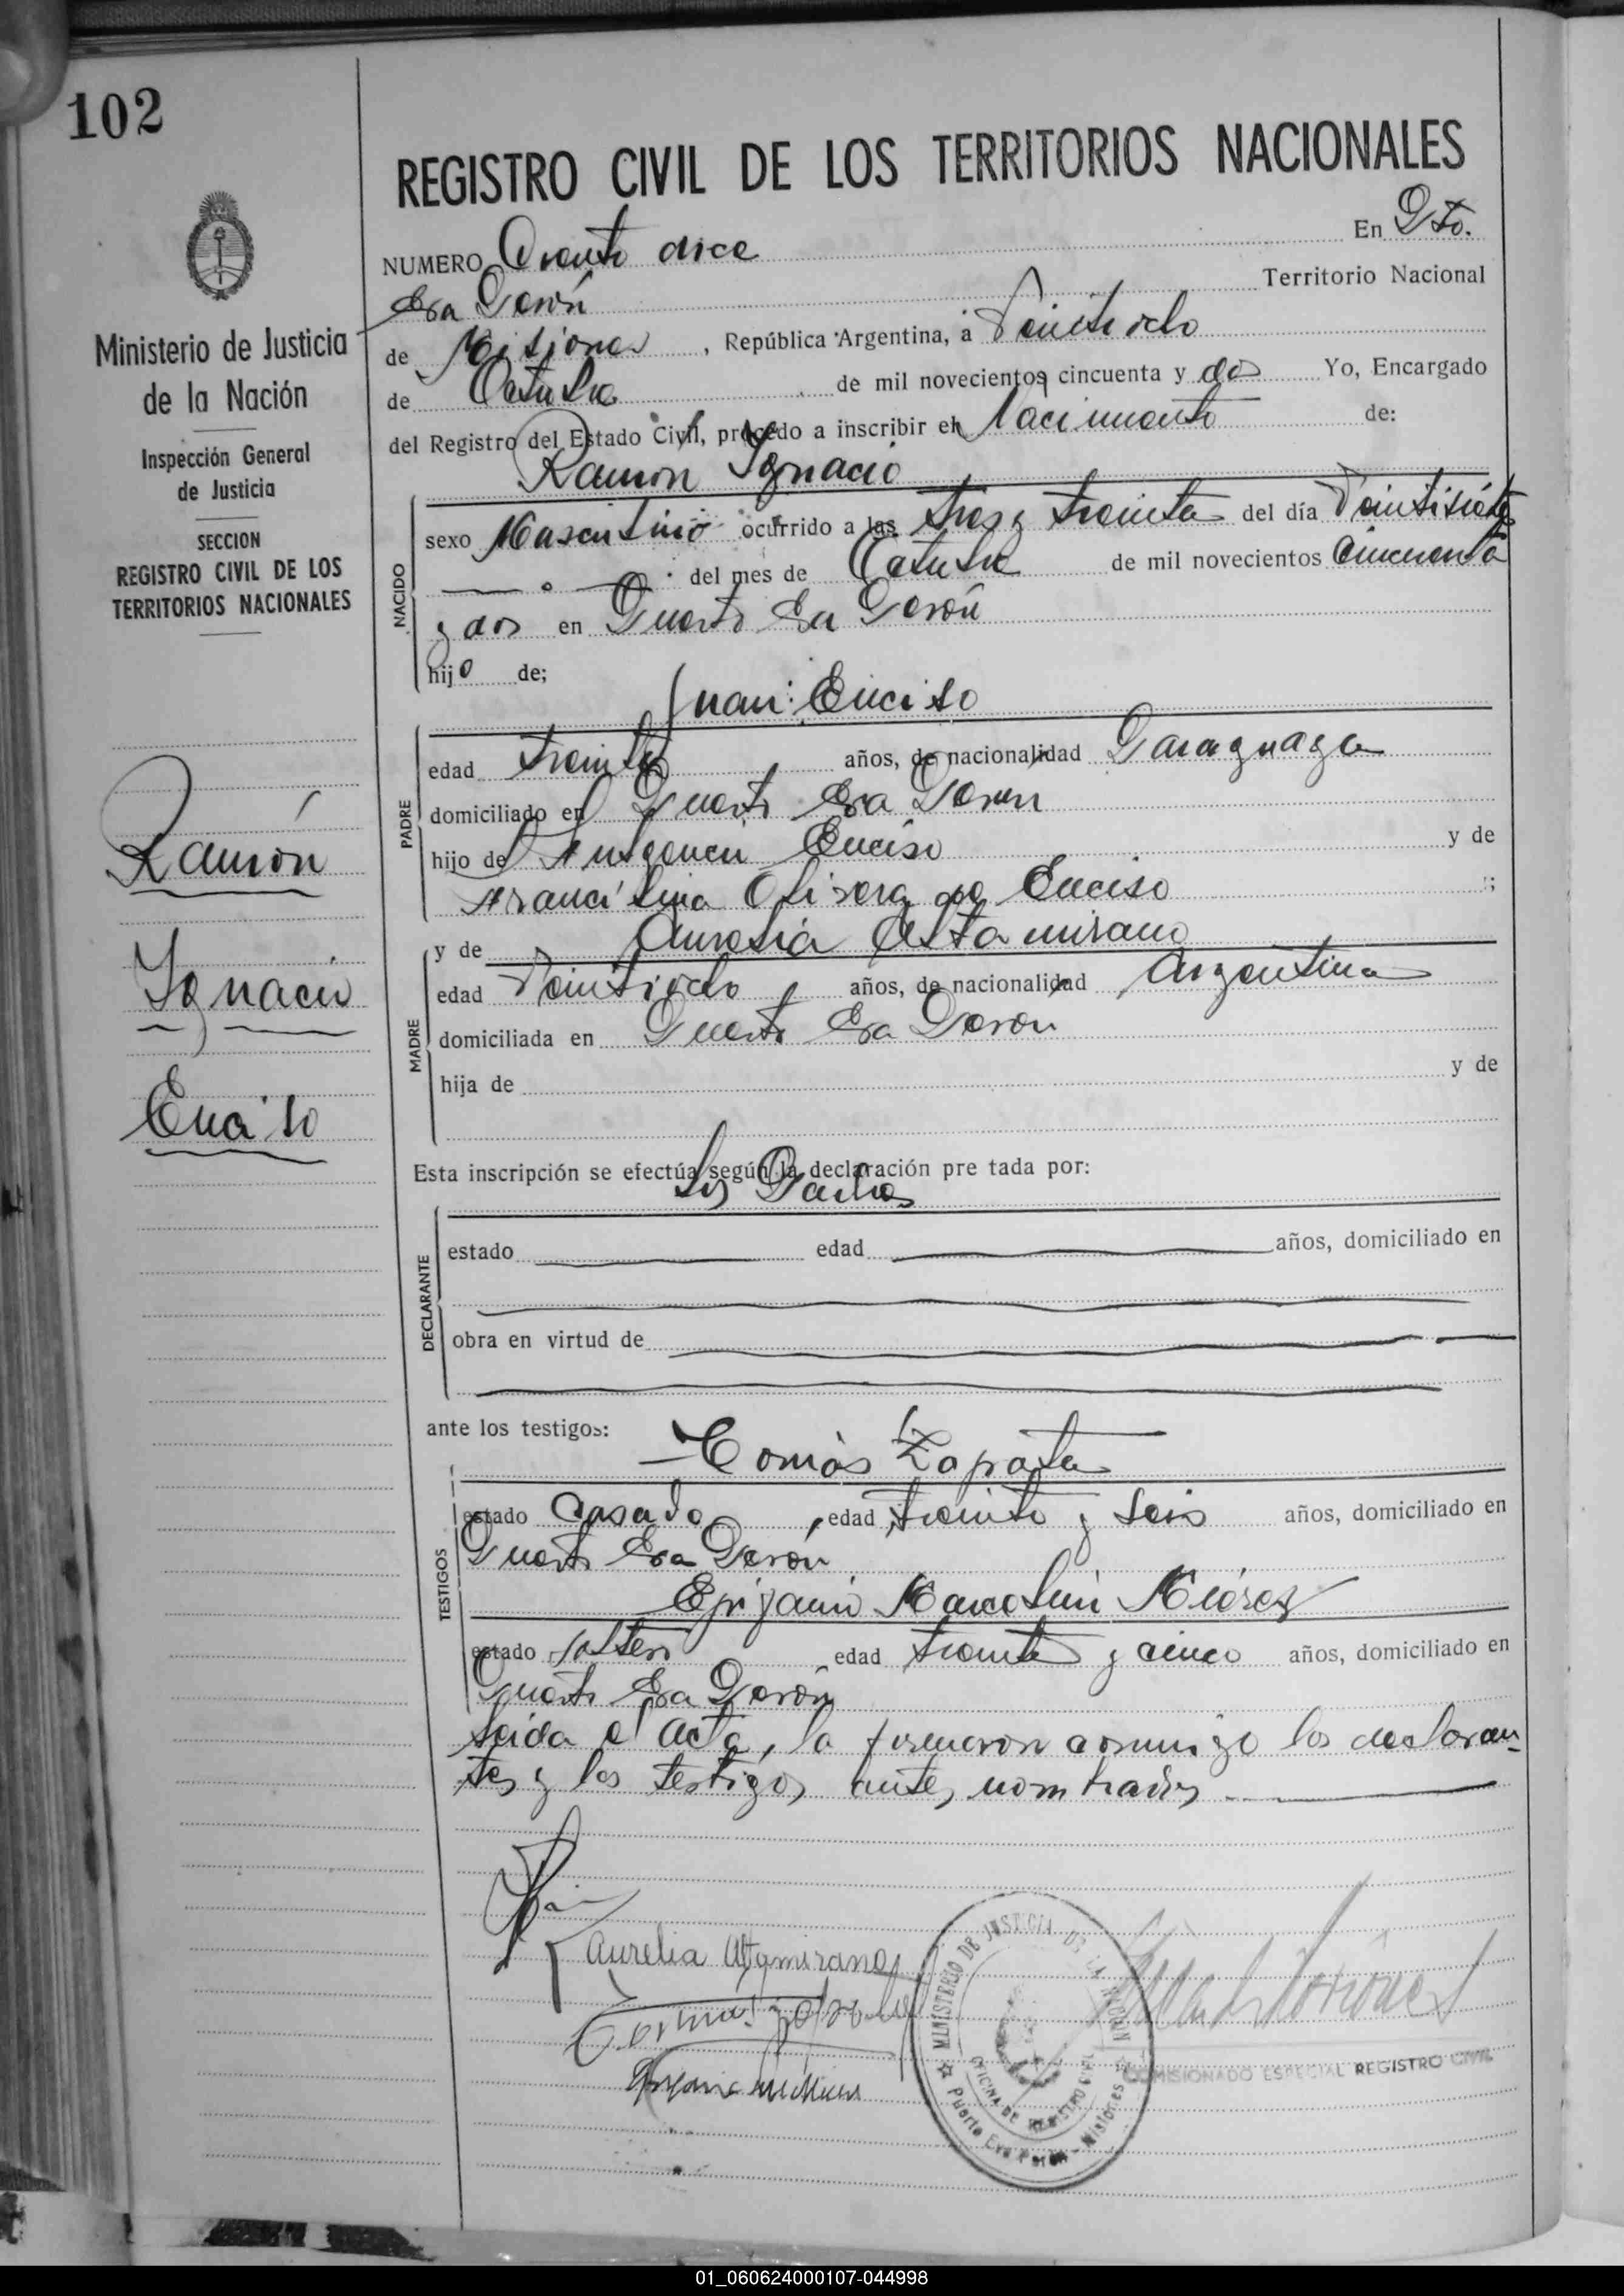 102
REGISTRO CIVIL DE LOS TERRITORIOS NACIONALES
Ministerio de Justicia
de la Nación
Inspección General
de Justicia
SECCION
REGISTRO CIVIL DE LOS
TERRITORIOS NACIONALES
Ramón
Ignacio
Enciso
NUMERO Ciento doce En Pto.
Eva Perón Territorio Nacional
de Misiones , República Argentina, a Veintiocho
de Octubre de mil novecientos cincuenta y dos Yo, Encargado
del Registro del Estado Civil, procedo a inscribir el Nacimiento de:
Ramón Ignacio
NACIDO
sexo Masculino ocurrido a las tres y treinta del día Veintisiete
del mes de Octubre de mil novecientos cincuenta
y dos en Puerto Eva Perón
hijo de;
Juan Enciso
PADRE
edad treinta años, de nacionalidad Paraguaya
domiciliado en Puerto Eva Perón
hijo de Enciso y de
de Enciso ;
y de Aurelia Altamirano
MADRE
edad Veintiocho años, de nacionalidad Argentina
domiciliada en Puerto Eva Perón
hija de y de
Esta inscripción se efectúa según la declaración pre tada por:
Los Padres
DECLARANTE
estado edad años, domiciliado en
obra en virtud de
ante los testigos:
Tomás Zapata
TESTIGOS
estado Casado , edad treinta y seis años, domiciliado en
Puerto Eva Perón
Epifanio
estado soltero edad treinta y cinco años, domiciliado en
Puerto Eva Perón
Leida el acta, la firmaron conmigo los declaran-
tes y los testigos antes nombrados
Aurelia Altamirano
Tomás Zapata
MINISTERIO DE JUSTICIA DE LA NACION
OFICINA DE REGISTRO CIVIL
Puerto Eva Perón - Misiones
COMISIONADO ESPECIAL REGISTRO CIVIL
01_060624000107-044998